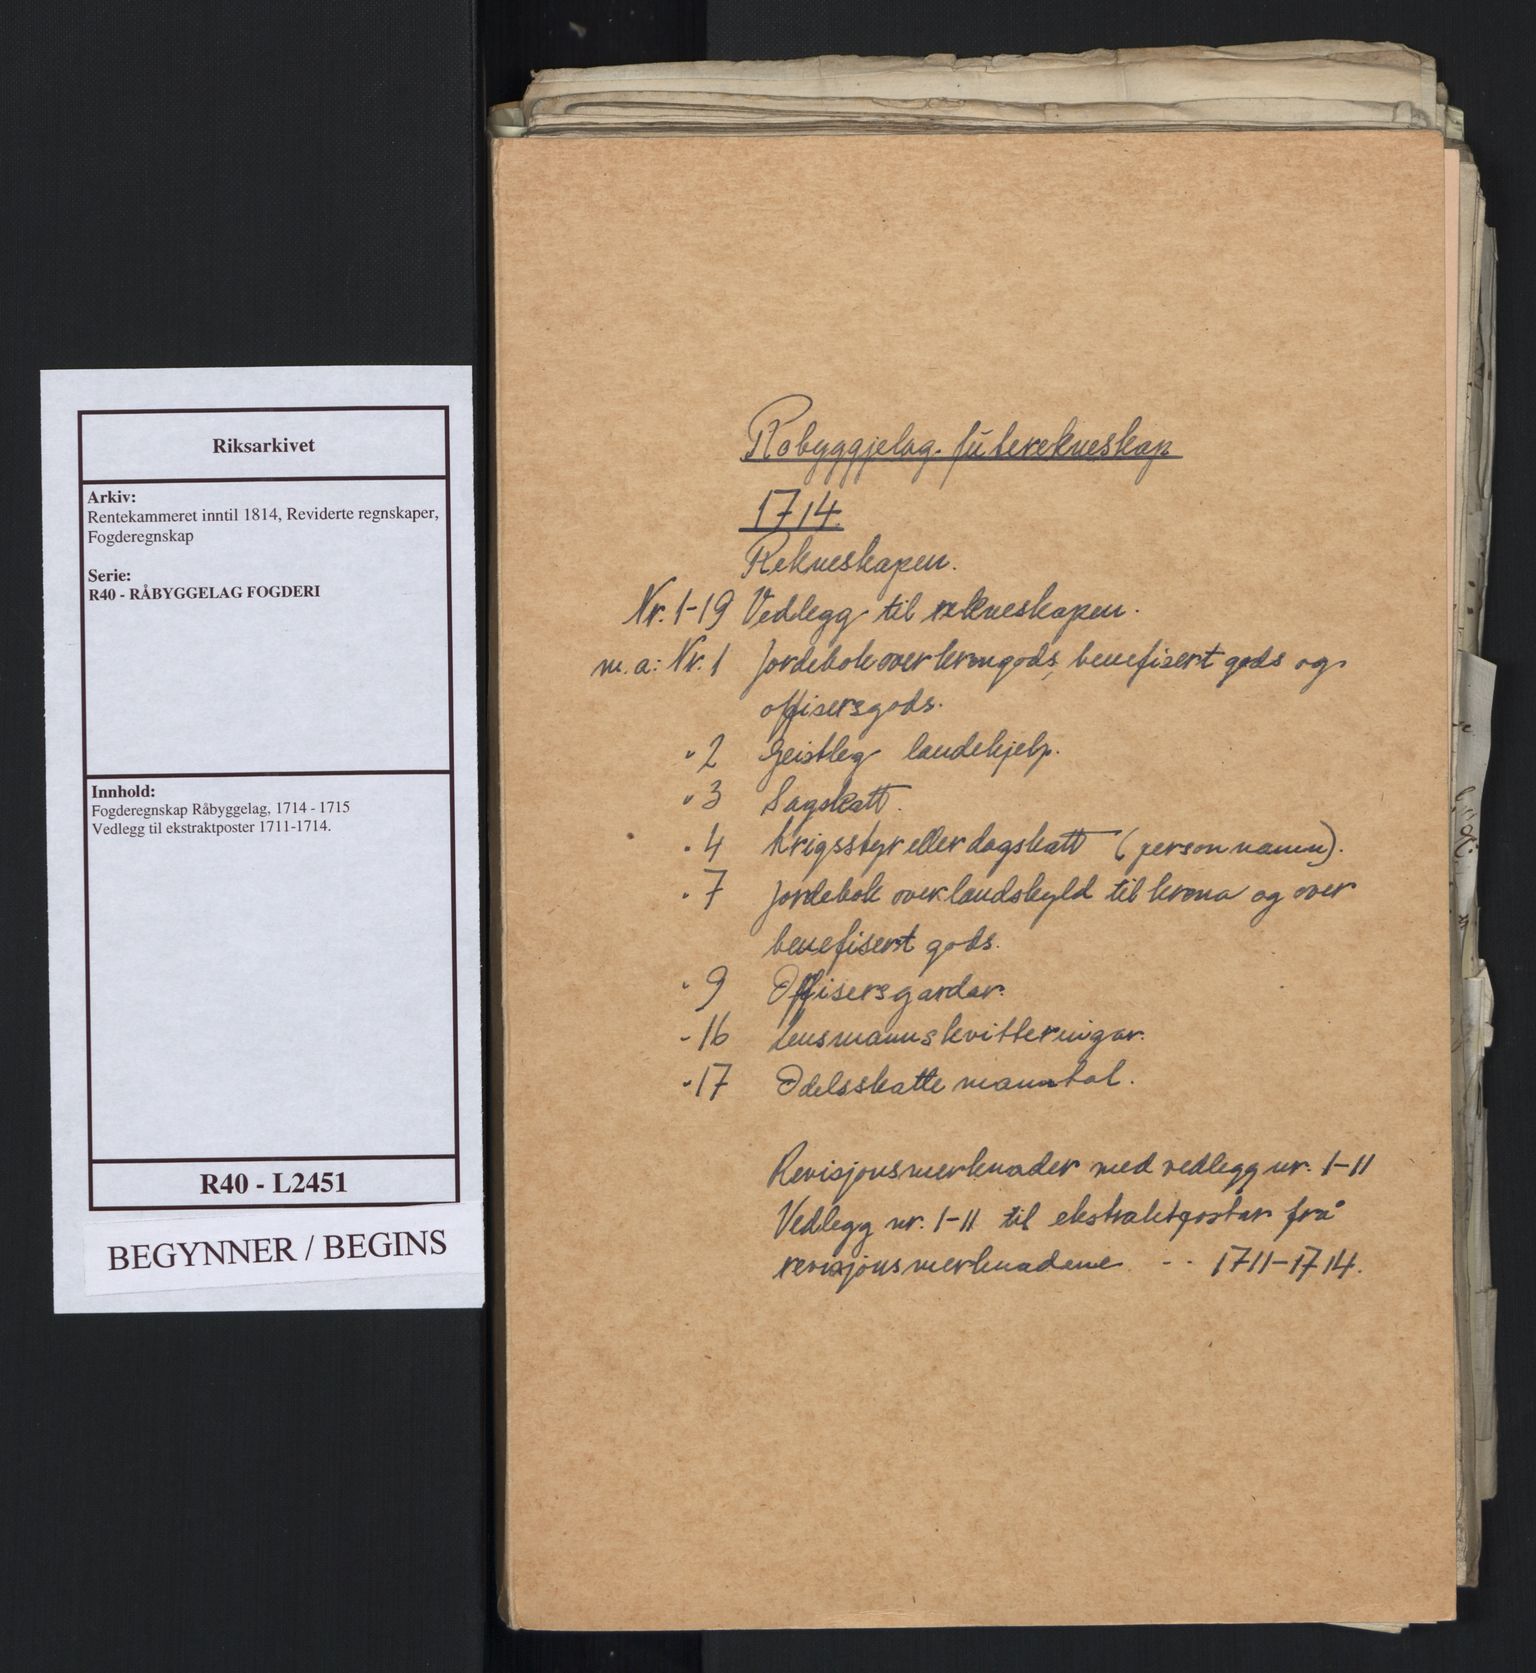 Riksarkivet
Arkiv:
Rentekammeret inntil 1814, Reviderte regnskaper,
Fogderegnskap
Serie:
R40 - RÅBYGGELAG FOGDERI
Innhold:
Fogderegnskap Råbyggelag, 1714 - 1715
Vedlegg til ekstraktposter 1711-1714.
R40 - L2451
BEGYNNER / BEGINS
Robyggjelag. futerekneskap
1714.
Rekneskapen.
Nr. 1-19 Vedlegg til rekneskapen.
m.a: Nr. 1 Jordebok over krongods, benefisert gods og
offisersgods.
" 2 Geistleg landehjelp.
" 3 Sagskatt.
" 4 Krigsstyr eller dagskatt (personnamn).
" 7 Jordebok over landskyld til krona og over
benefisert gods.
" 9 Offisersgardar.
" 16 Lensmannskvitteringar.
" 17 Odelsskattemanntal.
Revisjonsmerknader med vedlegg nr. 1-11
Vedlegg nr. 1-11 til ekstraktpostar frå
revisjonsmerknadene - - 1711-1714.